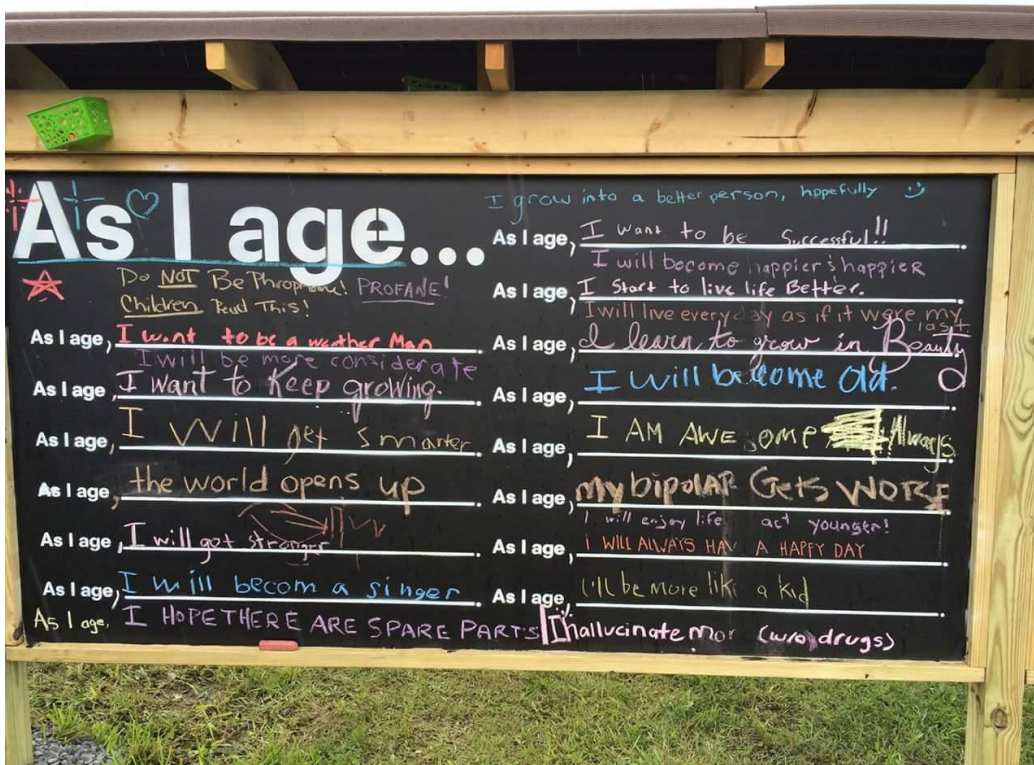 As I age...
Do NOT Be Phrophane! PROFANE!
Children Read This!
As I age, I want to be a weather Man.
I will be more considerate
As I age, I want to Keep growing.
As I age, I will get smarter.
As I age, the world opens up.
As I age, I will get stronger.
As I age, I will becom a singer.
As I age, I HOPE THERE ARE SPARE PARTS
I grow into a better person, hopefully
As I age, I want to be successful!!.
I will become happier & happier
As I age, I Start to live life Better.
I will live every day as if it were my last
As I age, I learn to grow in Beauty
As I age, I will become old.
As I age, I AM AWESOME Always.
As I age, my bipOLAR Gets WORSE
I will enjoy life act younger!
As I age, I WILL ALWAYS HAV A HAPPY DAY.
As I age, I'll be more like a kid.
I hallucinate mor (w/o drugs)